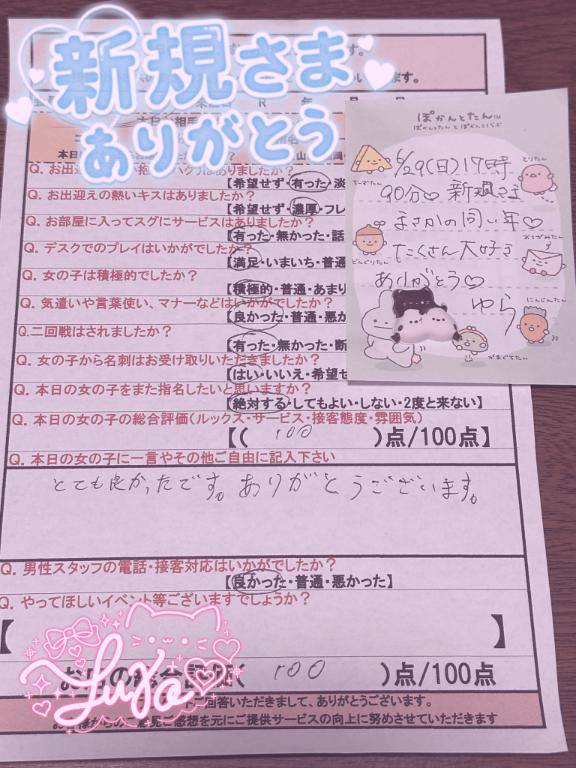 新規さま
ありがとう
ぽかんとたん
ぽかんとたんとぽかんとくらぶ
6/29(日)17時
90分♡ 新規さま
まさかの同い年♡
たくさん大好き
ありがとう♡
ゆら
どんぐりたん
おてがみたん
にんじんたん
がまぐちたん
とりたん
【希望せず・有った・淡
Q. お出迎えの熱いキスはありましたか?
【希望せず・濃厚・フレ
Q. お部屋に入ってスグにサービスはありましたか?
【有った・無かった・話
Q. デスクでのプレイはいかがでしたか?
【満足・いまいち・普通
Q. 女の子は積極的でしたか?
【積極的・普通・あまり
Q. 気遣いや言葉使い、マナーなどはいかがでしたか?
【良かった・普通・悪か
Q.二回戦はされましたか?
【有った・無かった・断
Q. 女の子から名刺はお受け取りいただきましたか?
【はい・いいえ・希望せ
Q. 本日の女の子をまた指名したいと思いますか?
【絶対する・してもよい・しない・2度と来ない】
Q. 本日の女の子の総合評価(ルックス・サービス・接客態度・雰囲気)
【( 100 )点/100点】
Q. 本日の女の子に一言やその他ご自由に記入下さい
とても良かったです。ありがとうございます。
Q. 男性スタッフの電話・接客対応はいかがでしたか?
【良かった・普通・悪かった】
Q. やってほしいイベント等ございますでしょうか?
【 】
( 100 )点/100点
回答いただきまして、ありがとうございます。
ご意見ご感想を元にご提供サービスの向上に努めさせていただきます